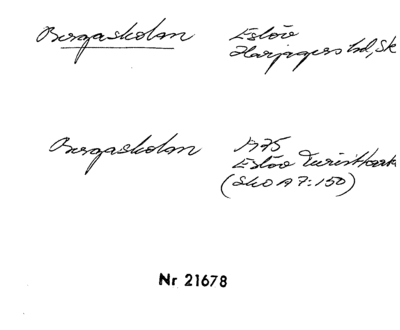 Bergaskolan Eslöv
Harjagers hd, Sk
Bergaskolan 1975
Eslöv Turistkarta
(SkO A 7:150)
Nr 21678